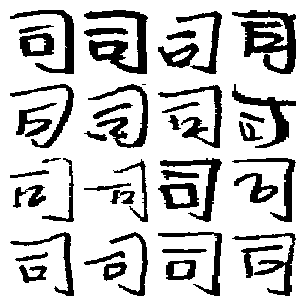 司司司司
司司司司
司司司司
司司司司